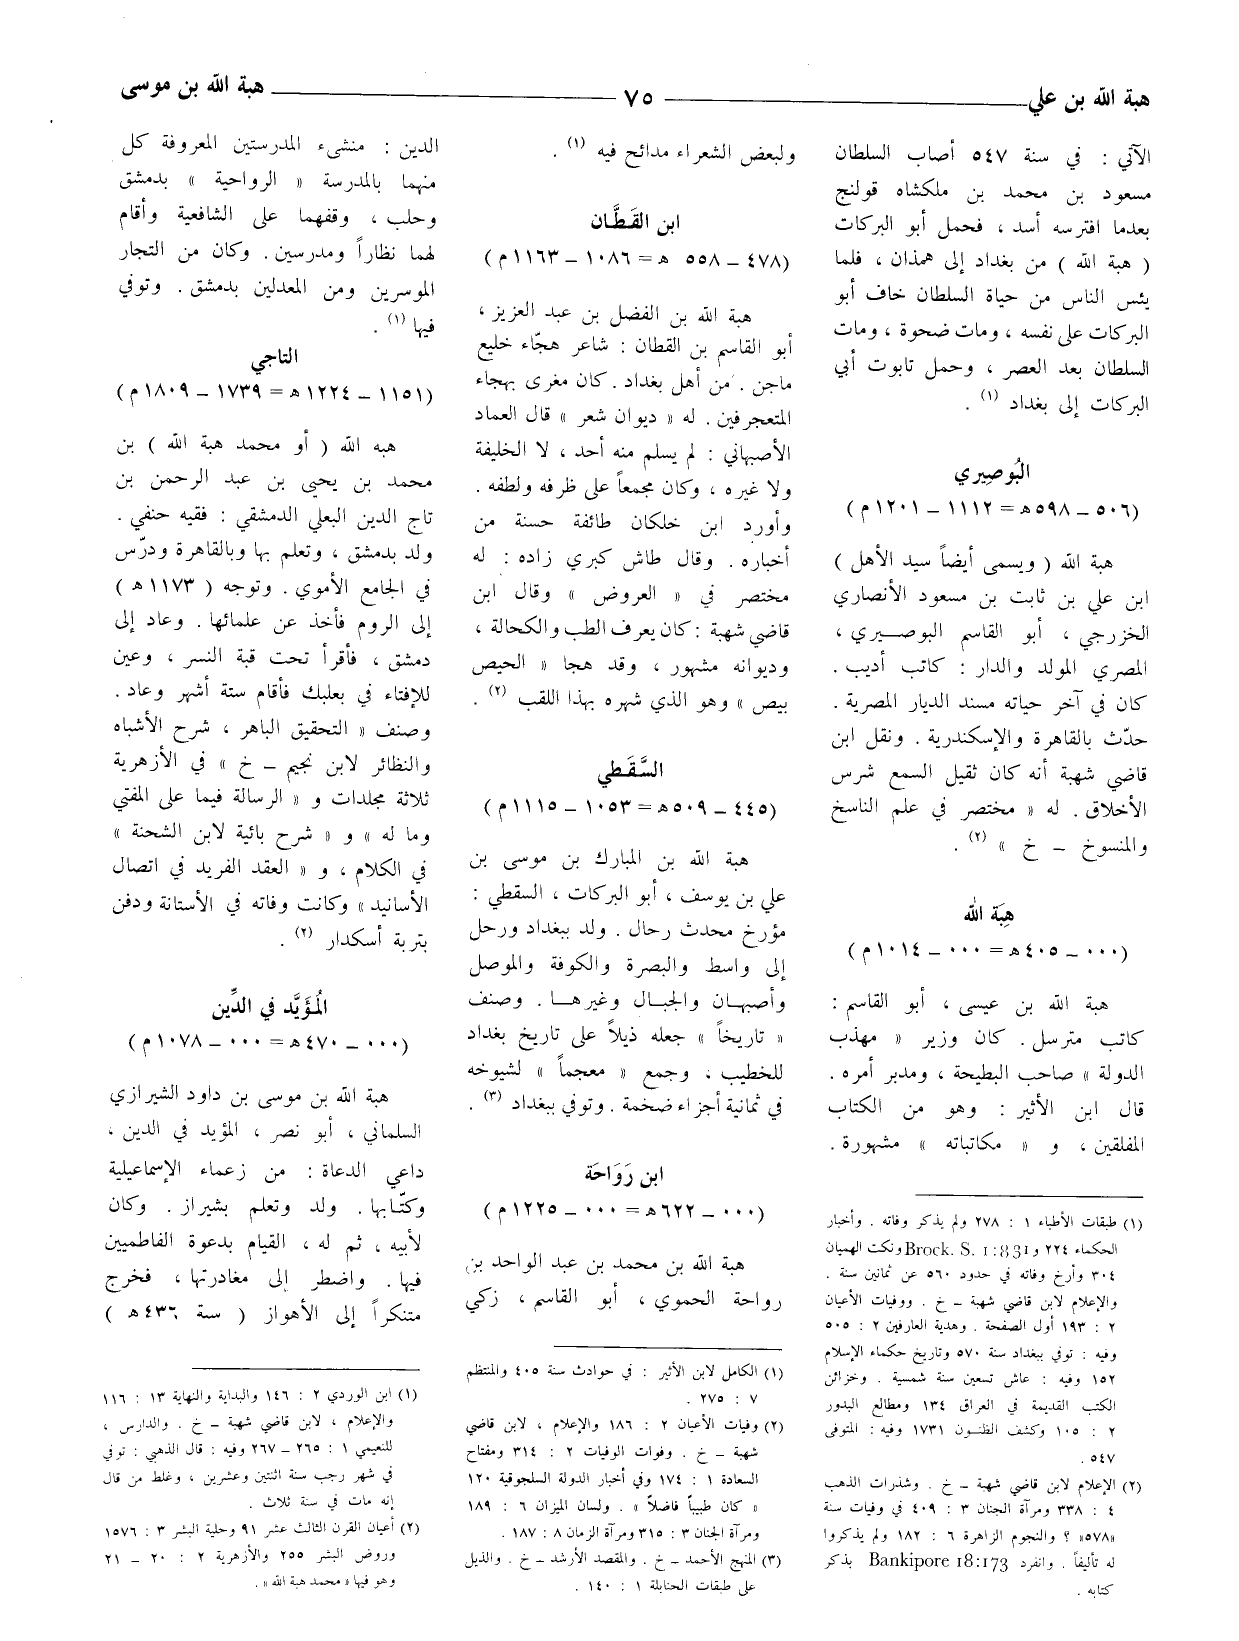 هبة الله بن علي
٧٥
هبة الله بن موسى
الآتي : في سنة ٥٤٧ أصاب السلطان
مسعود بن محمد بن ملكشاه قولنج
بعدما افترسه أسد ، فحمل أبو البركات
( هبة الله ) من بغداد إلى همذان ، فلما
يئس الناس من حياة السلطان خاف أبو
البركات على نفسه ، ومات ضحوة ، ومات
السلطان بعد العصر ، وحمل تابوت أبي
البركات إلى بغداد (١) .
البُوصِيري
(٥٠٦ – ٥٩٨ھ = ١١١٢ – ١٢٠١م)
هبة الله ( ويسمى أيضاً سيد الأهل )
ابن علي بن ثابت بن مسعود الأنصاري
الخزرجي ، أبو القاسم البوصيري ،
المصري المولد والدار : كاتب أديب .
كان في آخر حياته مسند الديار المصرية .
حدّث بالقاهرة والإسكندرية . ونقل ابن
قاضي شهبة أنه كان ثقيل السمع شرس
الأخلاق . له « مختصر في علم الناسخ
والمنسوخ – خ » (٢) .
هِبَة الله
(٠٠٠ – ٤٠٥ھ = ٠٠٠ – ١٠١٤م)
هبة الله بن عيسى ، أبو القاسم :
كاتب مترسل . كان وزير « مهذب
الدولة » صاحب البطيحة ، ومدبر أمره .
قال ابن الأثير : وهو من الكتاب
المفلقين ، و « مكاتباته » مشهورة .
(١) طبقات الأطباء ١ : ٢٧٨ ولم يذكر وفاته . وأخبار
الحكماء ٢٢٤ و Brock. S. 1:831 ونكت الهميان
٣٠٤ وأرخ وفاته في حدود ٥٦٠ عن ثمانين سنة .
والإعلام لابن قاضي شهبة – خ . ووفيات الأعيان
٢ : ١٩٣ أول الصفحة . وهدية العارفين ٢ : ٥٠٥
وفيه : توفي ببغداد سنة ٥٧٠ وتاريخ حكماء الإسلام
١٥٢ وفيه : عاش تسعين سنة شمسية . وخزائن
الكتب القديمة في العراق ١٣٤ ومطالع البدور
٢ : ١٠٥ وكشف الظنون ١٧٣١ وفيه : المتوفى
٥٤٧ .
(٢) الإعلام لابن قاضي شهبة – خ . وشذرات الذهب
٤ : ٣٣٨ ومرآة الجنان ٣ : ٤٠٩ في وفيات سنة
«٥٧٨» ؟ والنجوم الزاهرة ٦ : ١٨٢ ولم يذكروا
له تأليفاً . وانفرد Bankipore 18:173 بذكر
كتابه .
ولبعض الشعراء مدائح فيه (١) .
ابن القَطَّان
(٤٧٨ – ٥٥٨ ھ = ١٠٨٦ – ١١٦٣م)
هبة الله بن الفضل بن عبد العزيز ،
أبو القاسم بن القطان : شاعر هجّاء خليع
ماجن . من أهل بغداد . كان مغرى بهجاء
المتعجرفين . له « ديوان شعر » قال العماد
الأصبهاني : لم يسلم منه أحد ، لا الخليفة
ولا غيره ، وكان مجمعاً على ظرفه ولطفه .
وأورد ابن خلكان طائفة حسنة من
أخباره . وقال طاش كبري زاده : له
مختصر في « العروض » وقال ابن
قاضي شهبة : كان يعرف الطب والكحالة ،
وديوانه مشهور ، وقد هجا « الحيص
بيص » وهو الذي شهره بهذا اللقب (٢) .
السَّقَطي
(٤٤٥ – ٥٠٩ھ = ١٠٥٣ – ١١١٥م)
هبة الله بن المبارك بن موسى بن
علي بن يوسف ، أبو البركات ، السقطي :
مؤرخ محدث رحال . ولد ببغداد ورحل
إلى واسط والبصرة والكوفة والموصل
وأصبهان والجبال وغيرها . وصنف
« تاريخاً » جعله ذيلاً على تاريخ بغداد
للخطيب ، وجمع « معجماً » لشيوخه
في ثمانية أجزاء ضخمة . وتوفي ببغداد (٣) .
ابن رَوَاحَة
(٠٠٠ – ٦٢٢ھ = ٠٠٠ – ١٢٢٥م)
هبة الله بن محمد بن عبد الواحد بن
رواحة الحموي ، أبو القاسم ، زكي
(١) الكامل لابن الأثير : في حوادث سنة ٤٠٥ والمنتظم
٧ : ٢٧٥ .
(٢) وفيات الأعيان ٢ : ١٨٦ والإعلام ، لابن قاضي
شهبة – خ . وفوات الوفيات ٢ : ٣١٤ ومفتاح
السعادة ١ : ١٧٤ وفي أخبار الدولة السلجوقية ١٢٠
« كان طبيباً فاضلاً » . ولسان الميزان ٦ : ١٨٩
ومرآة الجنان ٣ : ٣١٥ ومرآة الزمان ٨ : ١٨٧ .
(٣) المنهج الأحمد – خ . والمقصد الأرشد – خ . والذيل
على طبقات الحنابلة ١ : ١٤٠ .
الدين : منشىء المدرستين المعروفة كل
منهما بالمدرسة « الرواحية » بدمشق
وحلب ، وقفهما على الشافعية وأقام
لهما نظاراً ومدرسين . وكان من التجار
الموسرين ومن المعدلين بدمشق . وتوفي
فيها (١) .
التاجي
(١١٥١ – ١٢٢٤ھ = ١٧٣٩ – ١٨٠٩م)
هبه الله ( أو محمد هبة الله ) بن
محمد بن يحيى بن عبد الرحمن بن
تاج الدين البعلي الدمشقي : فقيه حنفي .
ولد بدمشق ، وتعلم بها وبالقاهرة ودرّس
في الجامع الأموي . وتوجه ( ١١٧٣ھ )
إلى الروم فأخذ عن علمائها . وعاد إلى
دمشق ، فأقرأ تحت قبة النسر ، وعين
للإفتاء في بعلبك فأقام ستة أشهر وعاد .
وصنف « التحقيق الباهر ، شرح الأشباه
والنظائر لابن نجيم – خ » في الأزهرية
ثلاثة مجلدات و « الرسالة فيما على المفتي
وما له » و « شرح بائية لابن الشحنة »
في الكلام ، و « العقد الفريد في اتصال
الأسانيد » وكانت وفاته في الأستانة ودفن
بتربة أسكدار (٢) .
المُؤَيَّد في الدِّين
(٠٠٠ – ٤٧٠ھ = ٠٠٠ – ١٠٧٨م)
هبة الله بن موسى بن داود الشيرازي
السلماني ، أبو نصر ، المؤيد في الدين ،
داعي الدعاة : من زعماء الإسماعيلية
وكتّابها . ولد وتعلم بشيراز . وكان
لأبيه ، ثم له ، القيام بدعوة الفاطميين
فيها . واضطر إلى مغادرتها ، فخرج
متنكراً إلى الأهواز ( سنة ٤٣٦ھ )
(١) ابن الوردي ٢ : ١٤٦ والبداية والنهاية ١٣ : ١١٦
والإعلام ، لابن قاضي شهبة – خ . والدارس ،
للنعيمي ١ : ٢٦٥ – ٢٦٧ وفيه : قال الذهبي : توفي
في شهر رجب سنة اثنتين وعشرين ، وغلط من قال
إنه مات في سنة ثلاث .
(٢) أعيان القرن الثالث عشر ٩١ وحلية البشر ٣ : ١٥٧٦
وروض البشر ٢٥٥ والأزهرية ٢ : ٢٠ – ٢١
وهو فيها « محمد هبة الله » .